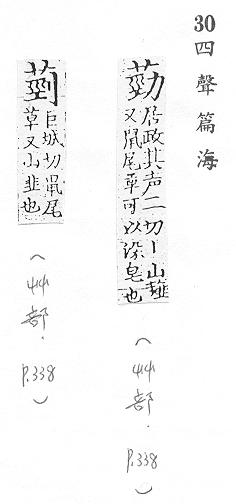 30四聲篇海
葝居政其声二切丨山䪥
又鼠尾草可以染皂也
(艸部. P.338)
𦵞巨城切鼠尾
草又山韭也
(艸部. P.338)